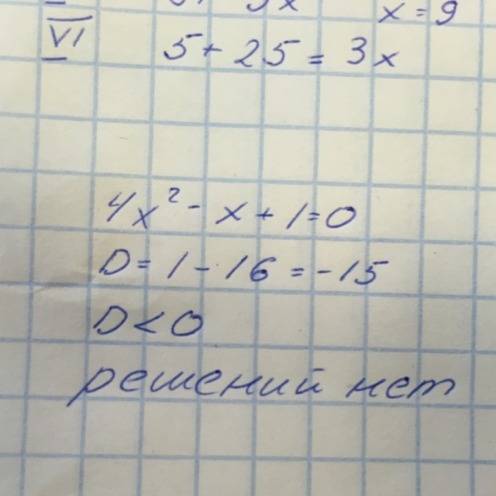 x = 9
VI 5 + 25 = 3x
4x² - x + 1 = 0
D = 1 - 16 = -15
D < 0
решений нет